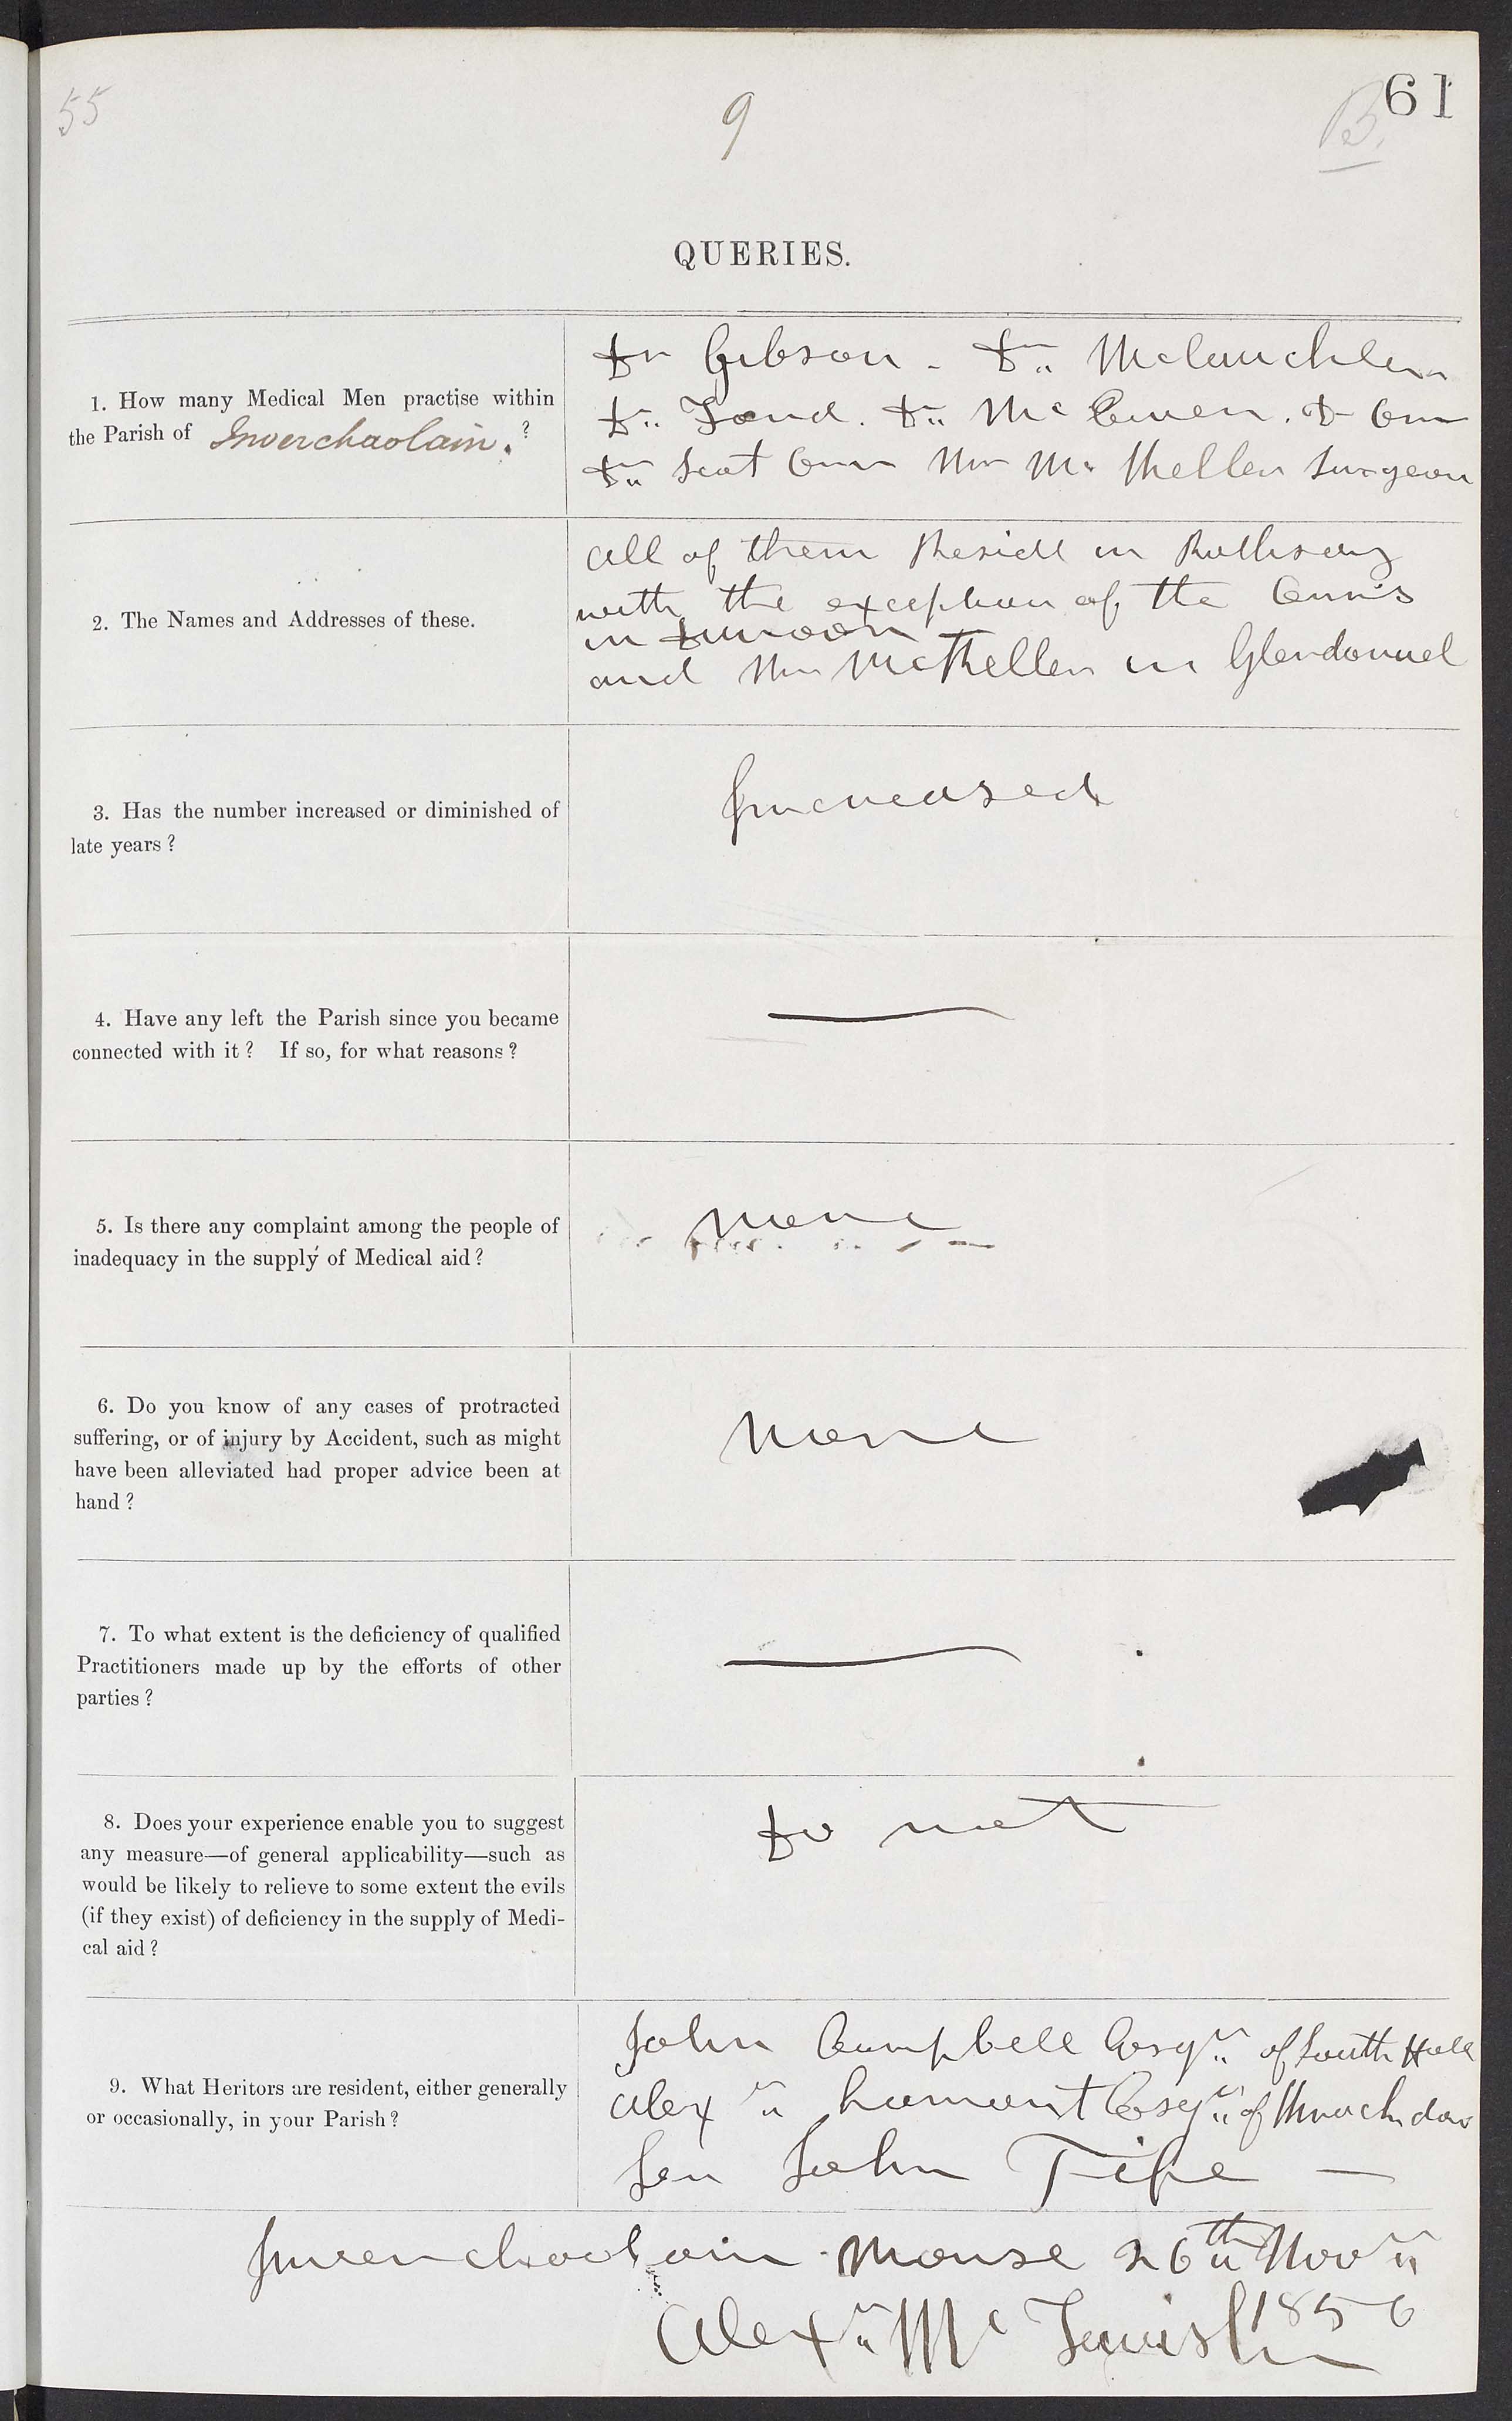 55
9
B.
61
QUERIES.
1. How many Medical Men practise within
the Parish of Inverchaolain. ?
Dr Gibson - Dr Mclauchlan
Dr Mc Ewen. Dr
Dr Mr Surgeon
2. The Names and Addresses of these.
all of them Reside in Rothsay
with the exception of the
in Dunoon
and Mr in Glendaruel
3. Has the number increased or diminished of
late years ?
Increased
4. Have any left the Parish since you became
connected with it ? If so, for what reasons ?
—
5. Is there any complaint among the people of
inadequacy in the supply of Medical aid ?
None
6. Do you know of any cases of protracted
suffering, or of injury by Accident, such as might
have been alleviated had proper advice been at
hand ?
None
7. To what extent is the deficiency of qualified
Practitioners made up by the efforts of other
parties ?
—
8. Does your experience enable you to suggest
any measure—of general applicability—such as
would be likely to relieve to some extent the evils
(if they exist) of deficiency in the supply of Medi-
cal aid ?
Do not
9. What Heritors are resident, either generally
or occasionally, in your Parish ?
John Campbell Esqr of South Hall
Alexr Lamont Esqr of
John Fife —
Inverchaolain Manse 26th Novr
1856
Alexr Mc Tavish